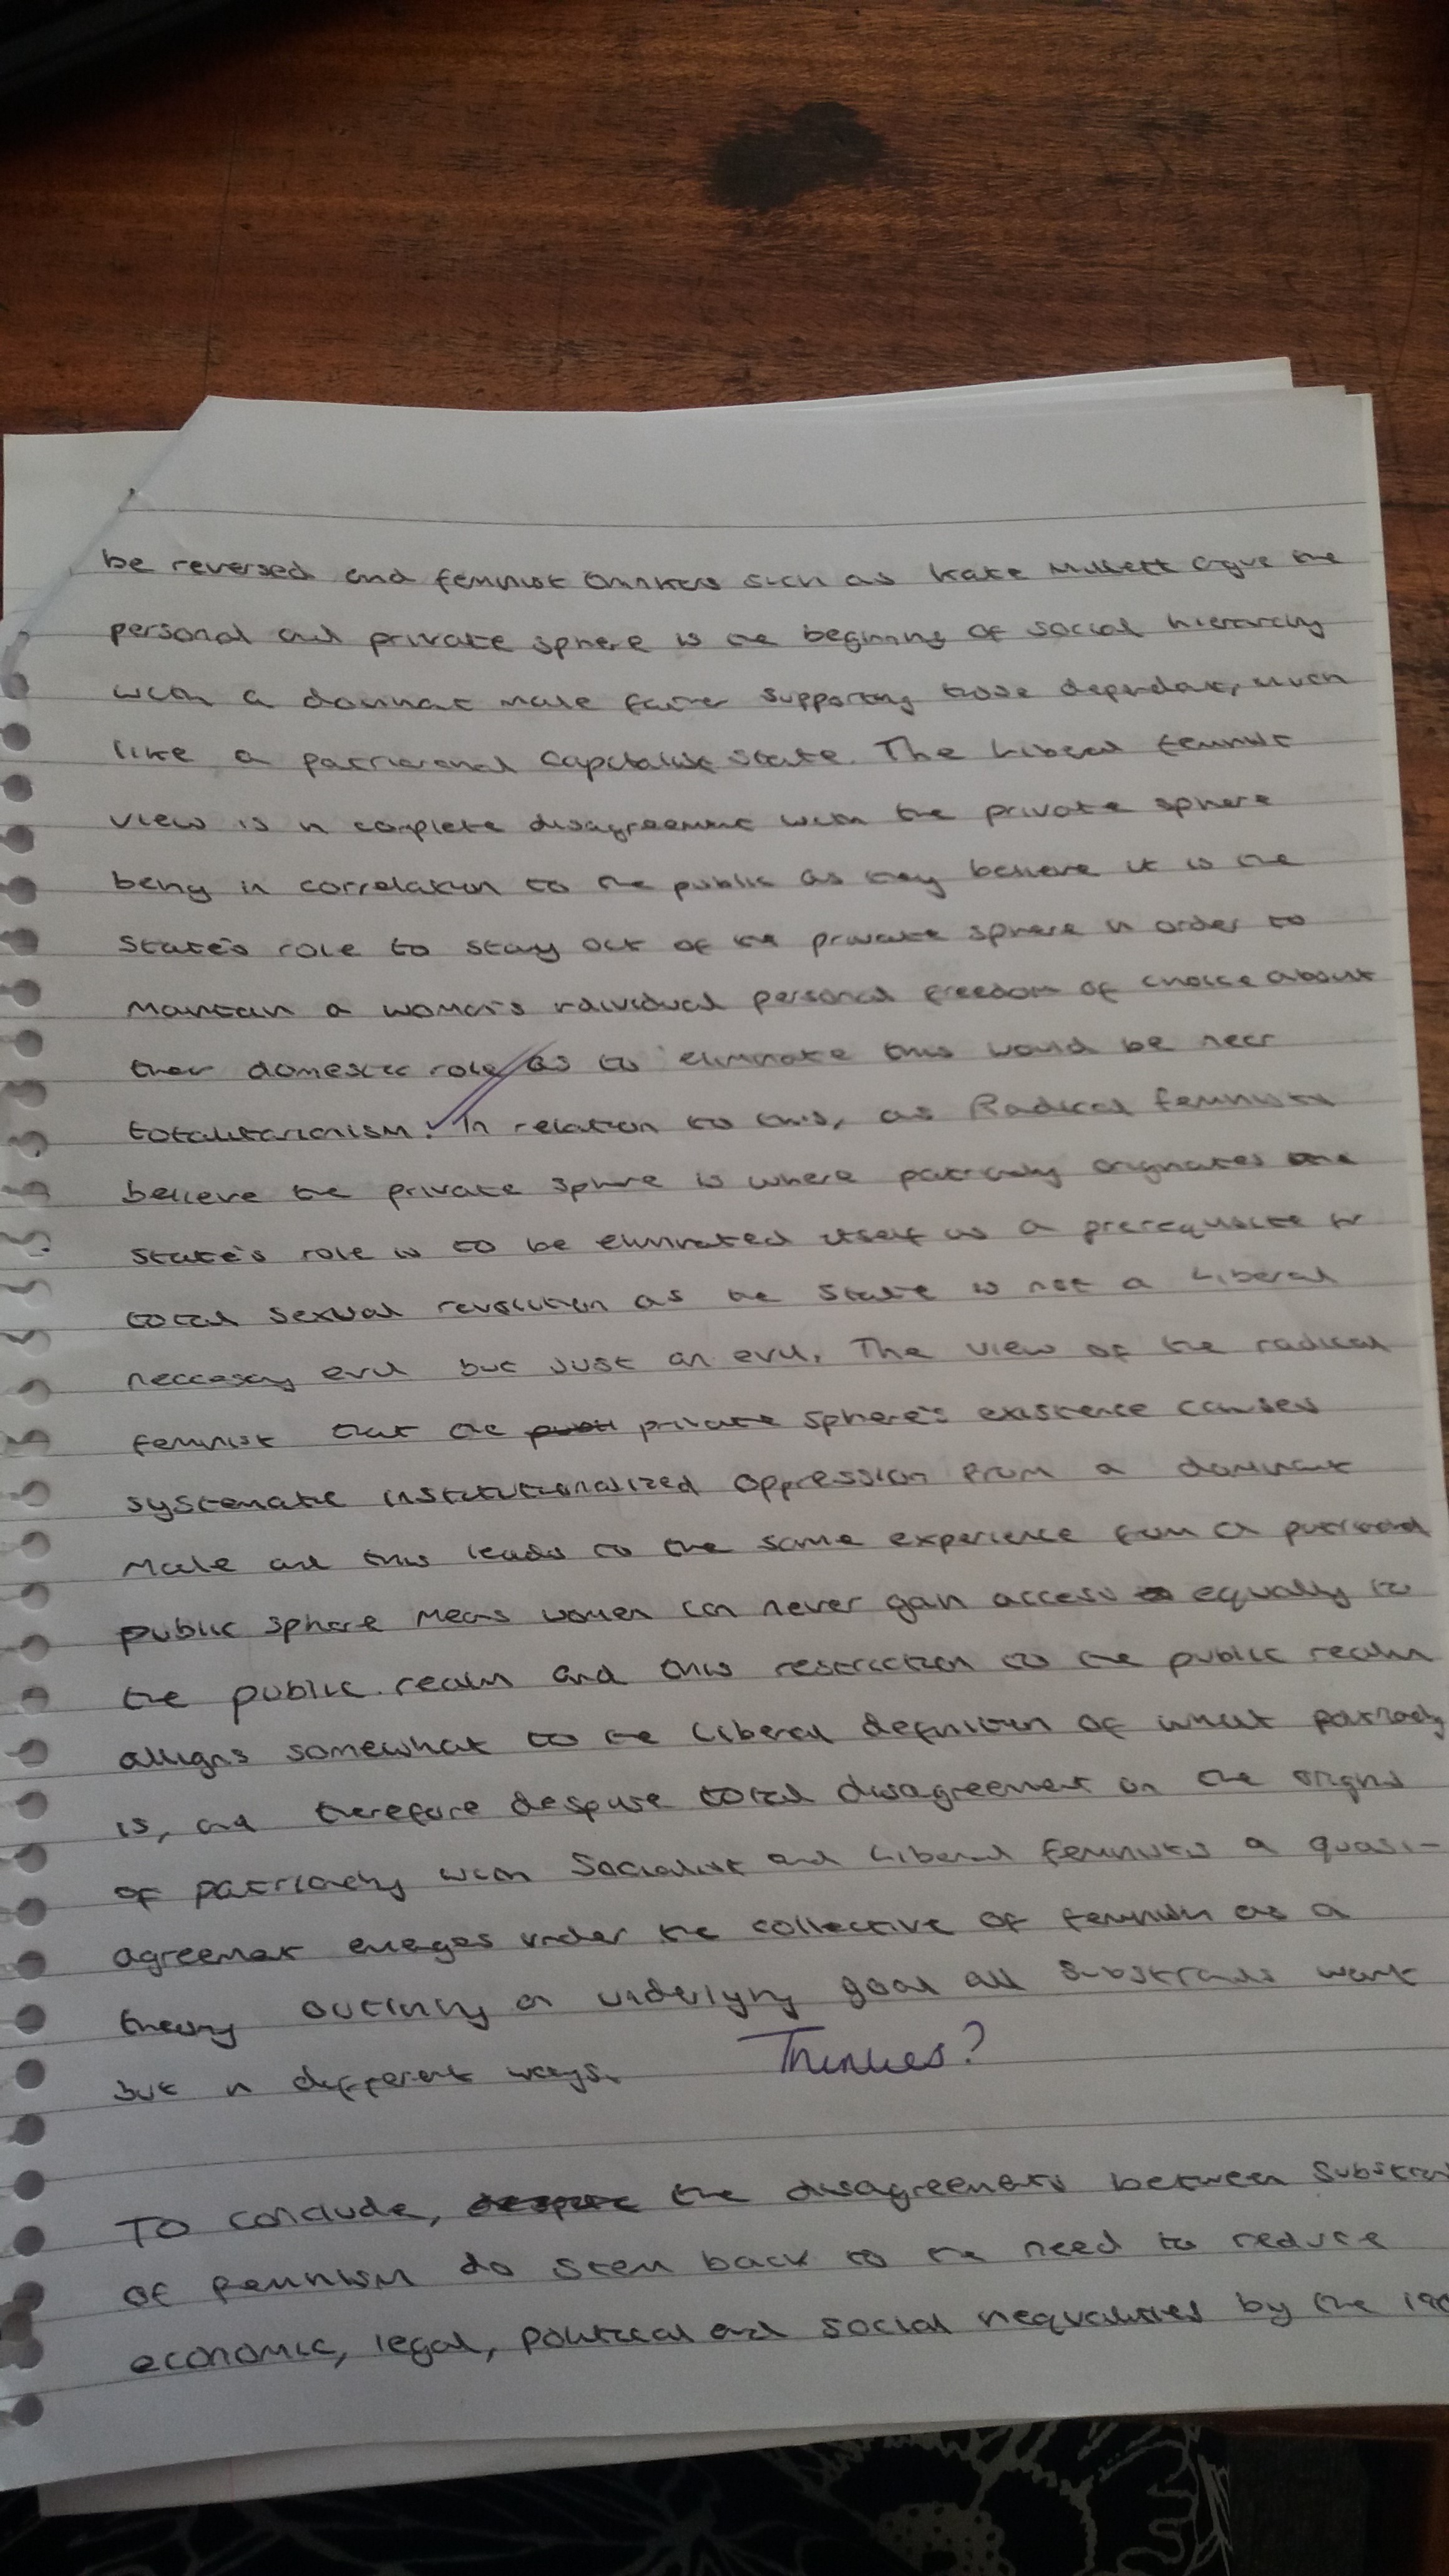 be reversed and feminist thinkers such as Kate Millett argue the
personal and private sphere is the beginning of social hierarchy
with a dominat male father supporting those dependant, much
like a patriarchal capitalist state. The Liberal feminist
view is in complete disagreement with the private sphere
being in correlation to the public as they believe it is the
state's role to stay out of the private sphere in order to
maintain a woman's individual personal freedom of choice about
their domestic role as to eliminate this would be near
totalitarianism. In relation to this, as Radical feminists
believe the private sphere is where patriarchy originates the
state's role is to be eliminated itself as a prerequisite for
total sexual revolution as the state is not a Liberal
neccesary evil but just an evil. The view of the radical
feminist that the private sphere's existence causes
systematic institutionalized oppression from a dominant
male and this leads to the same experience from a patriarchal
public sphere means women can never gain access equally to
the public realm and this restriction to the public realm
alligns somewhat to the Liberal definition of what patriarchy
is, and therefore despite total disagreement on the origins
of patriarchy with Socialist and Liberal feminists a quasi-
agreement emerges under the collective of feminism as a
theory outlining an underlying goal all substrands want
but in different ways.
Thinkers?
To conclude, the disagreements between
of feminism do stem back to the need to reduce
economic, legal, political and social inequalities by the